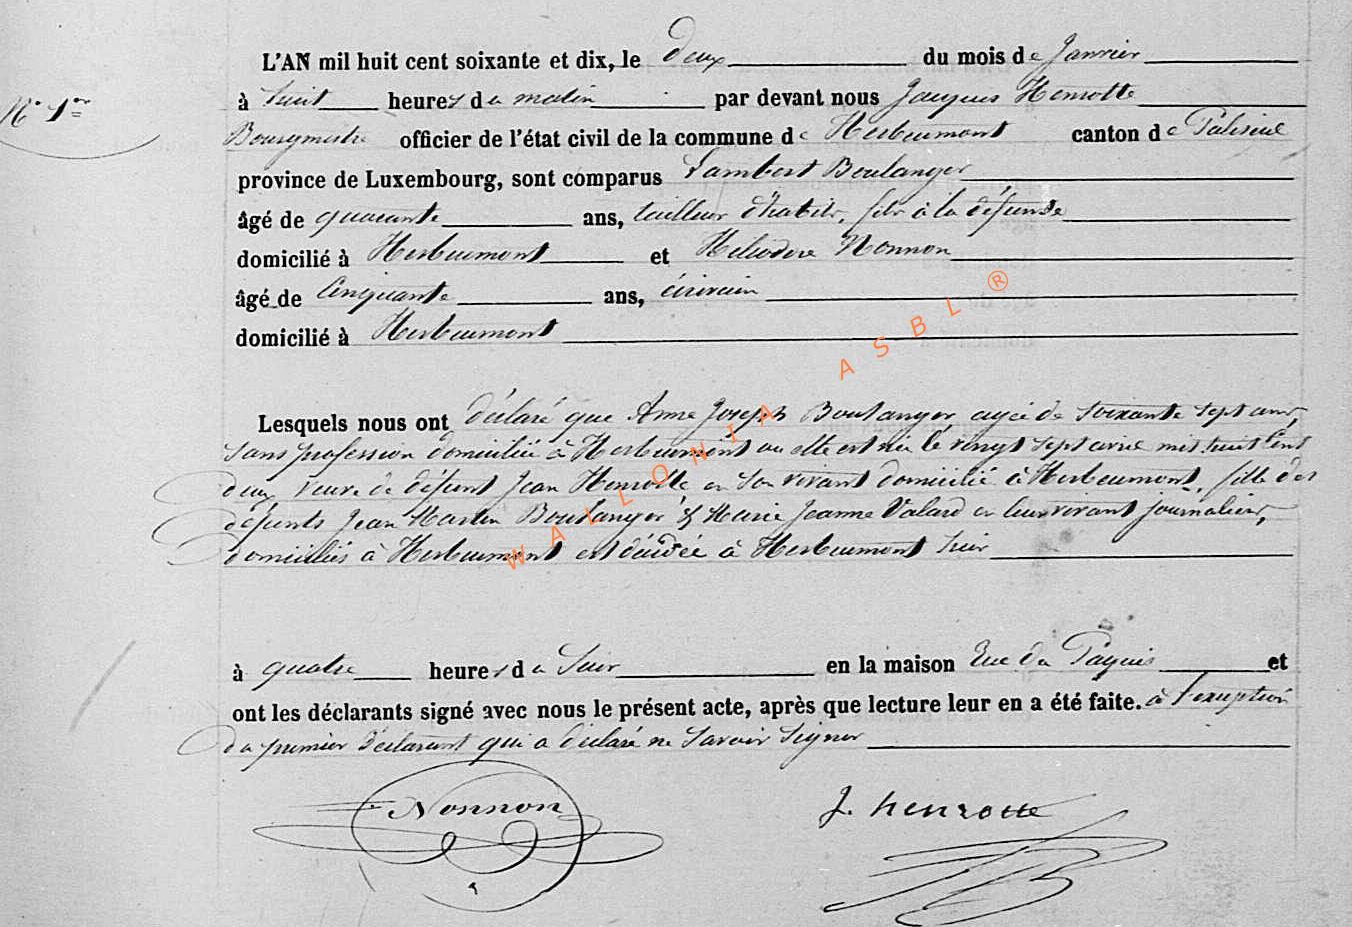 L'AN mil huit cent soixante et dix, le deux du mois de Janvier
N° 1er
à huit heures du matin par devant nous Jacques Henrotte
Bourgmestre officier de l'état civil de la commune de Herbeumont canton de Paliseul
province de Luxembourg, sont comparus Lambert Boulanger
âgé de quarante ans, tailleur d'habits, fils à la défunte
domicilié à Herbeumont et Héliodore Nonnon
âgé de Cinquante ans, écrivain
domicilié à Herbeumont
Lesquels nous ont déclaré que Anne Joseph Boulanger agée de soixante sept ans
sans profession domiciliée à Herbeumont ou elle est née le vingt sept avril mil huit cent
deux veuve de défunt Jean Henrotte en son vivant domicilié à Herbeumont, fille des
défunts Jean Martin Boulanger & Marie Jeanne Valard en leur vivant journaliers,
domiciliés à Herbeumont est décédée à Herbeumont hier
à quatre heures du Soir en la maison Rue du Paquis et
ont les déclarants signé avec nous le présent acte, après que lecture leur en a été faite. à l'exception
du premier déclarant qui a déclaré ne savoir signer
Nonnon J. henrotte
WALLONIA ASBL ®